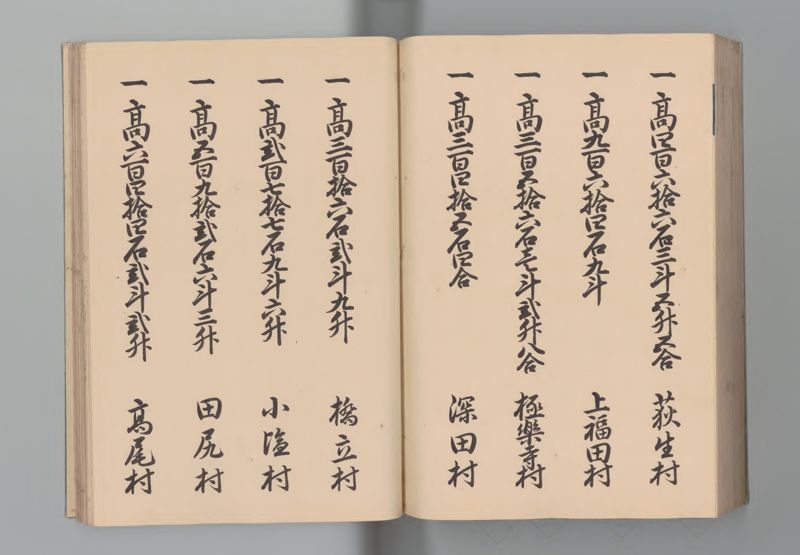 一 高四百六拾六石三斗五升五合 荻生村
一 高九百六拾四石九斗 上福田村
一 高三百五拾六石壱斗弐升八合 極樂寺村
一 高三百四拾五石四合 深田村
一 高三百拾六石弐斗九升 橋立村
一 高弐百七拾七石九斗六升 小塩村
一 高五百九拾弐石六斗三升 田尻村
一 高六百四拾四石弐斗弐升 高尾村